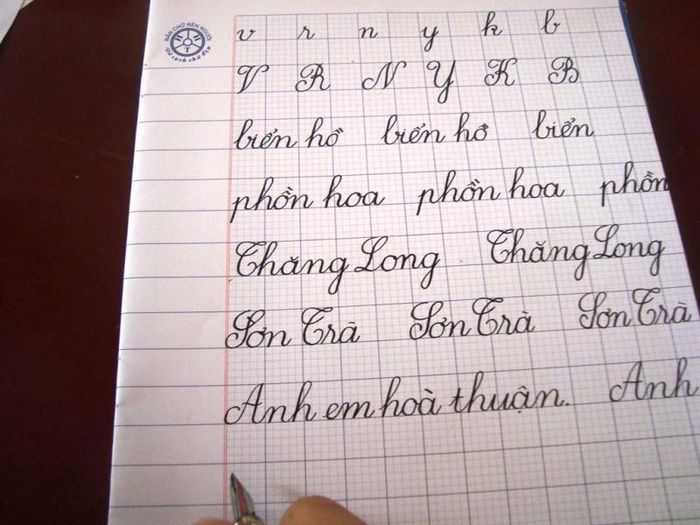 v r n y k b
V R N Y K B
biển hồ biển hồ biển
phồn hoa phồn hoa phồn
Thăng Long Thăng Long
Sơn Trà Sơn Trà Sơn Trà
Anh em hoà thuận. Anh